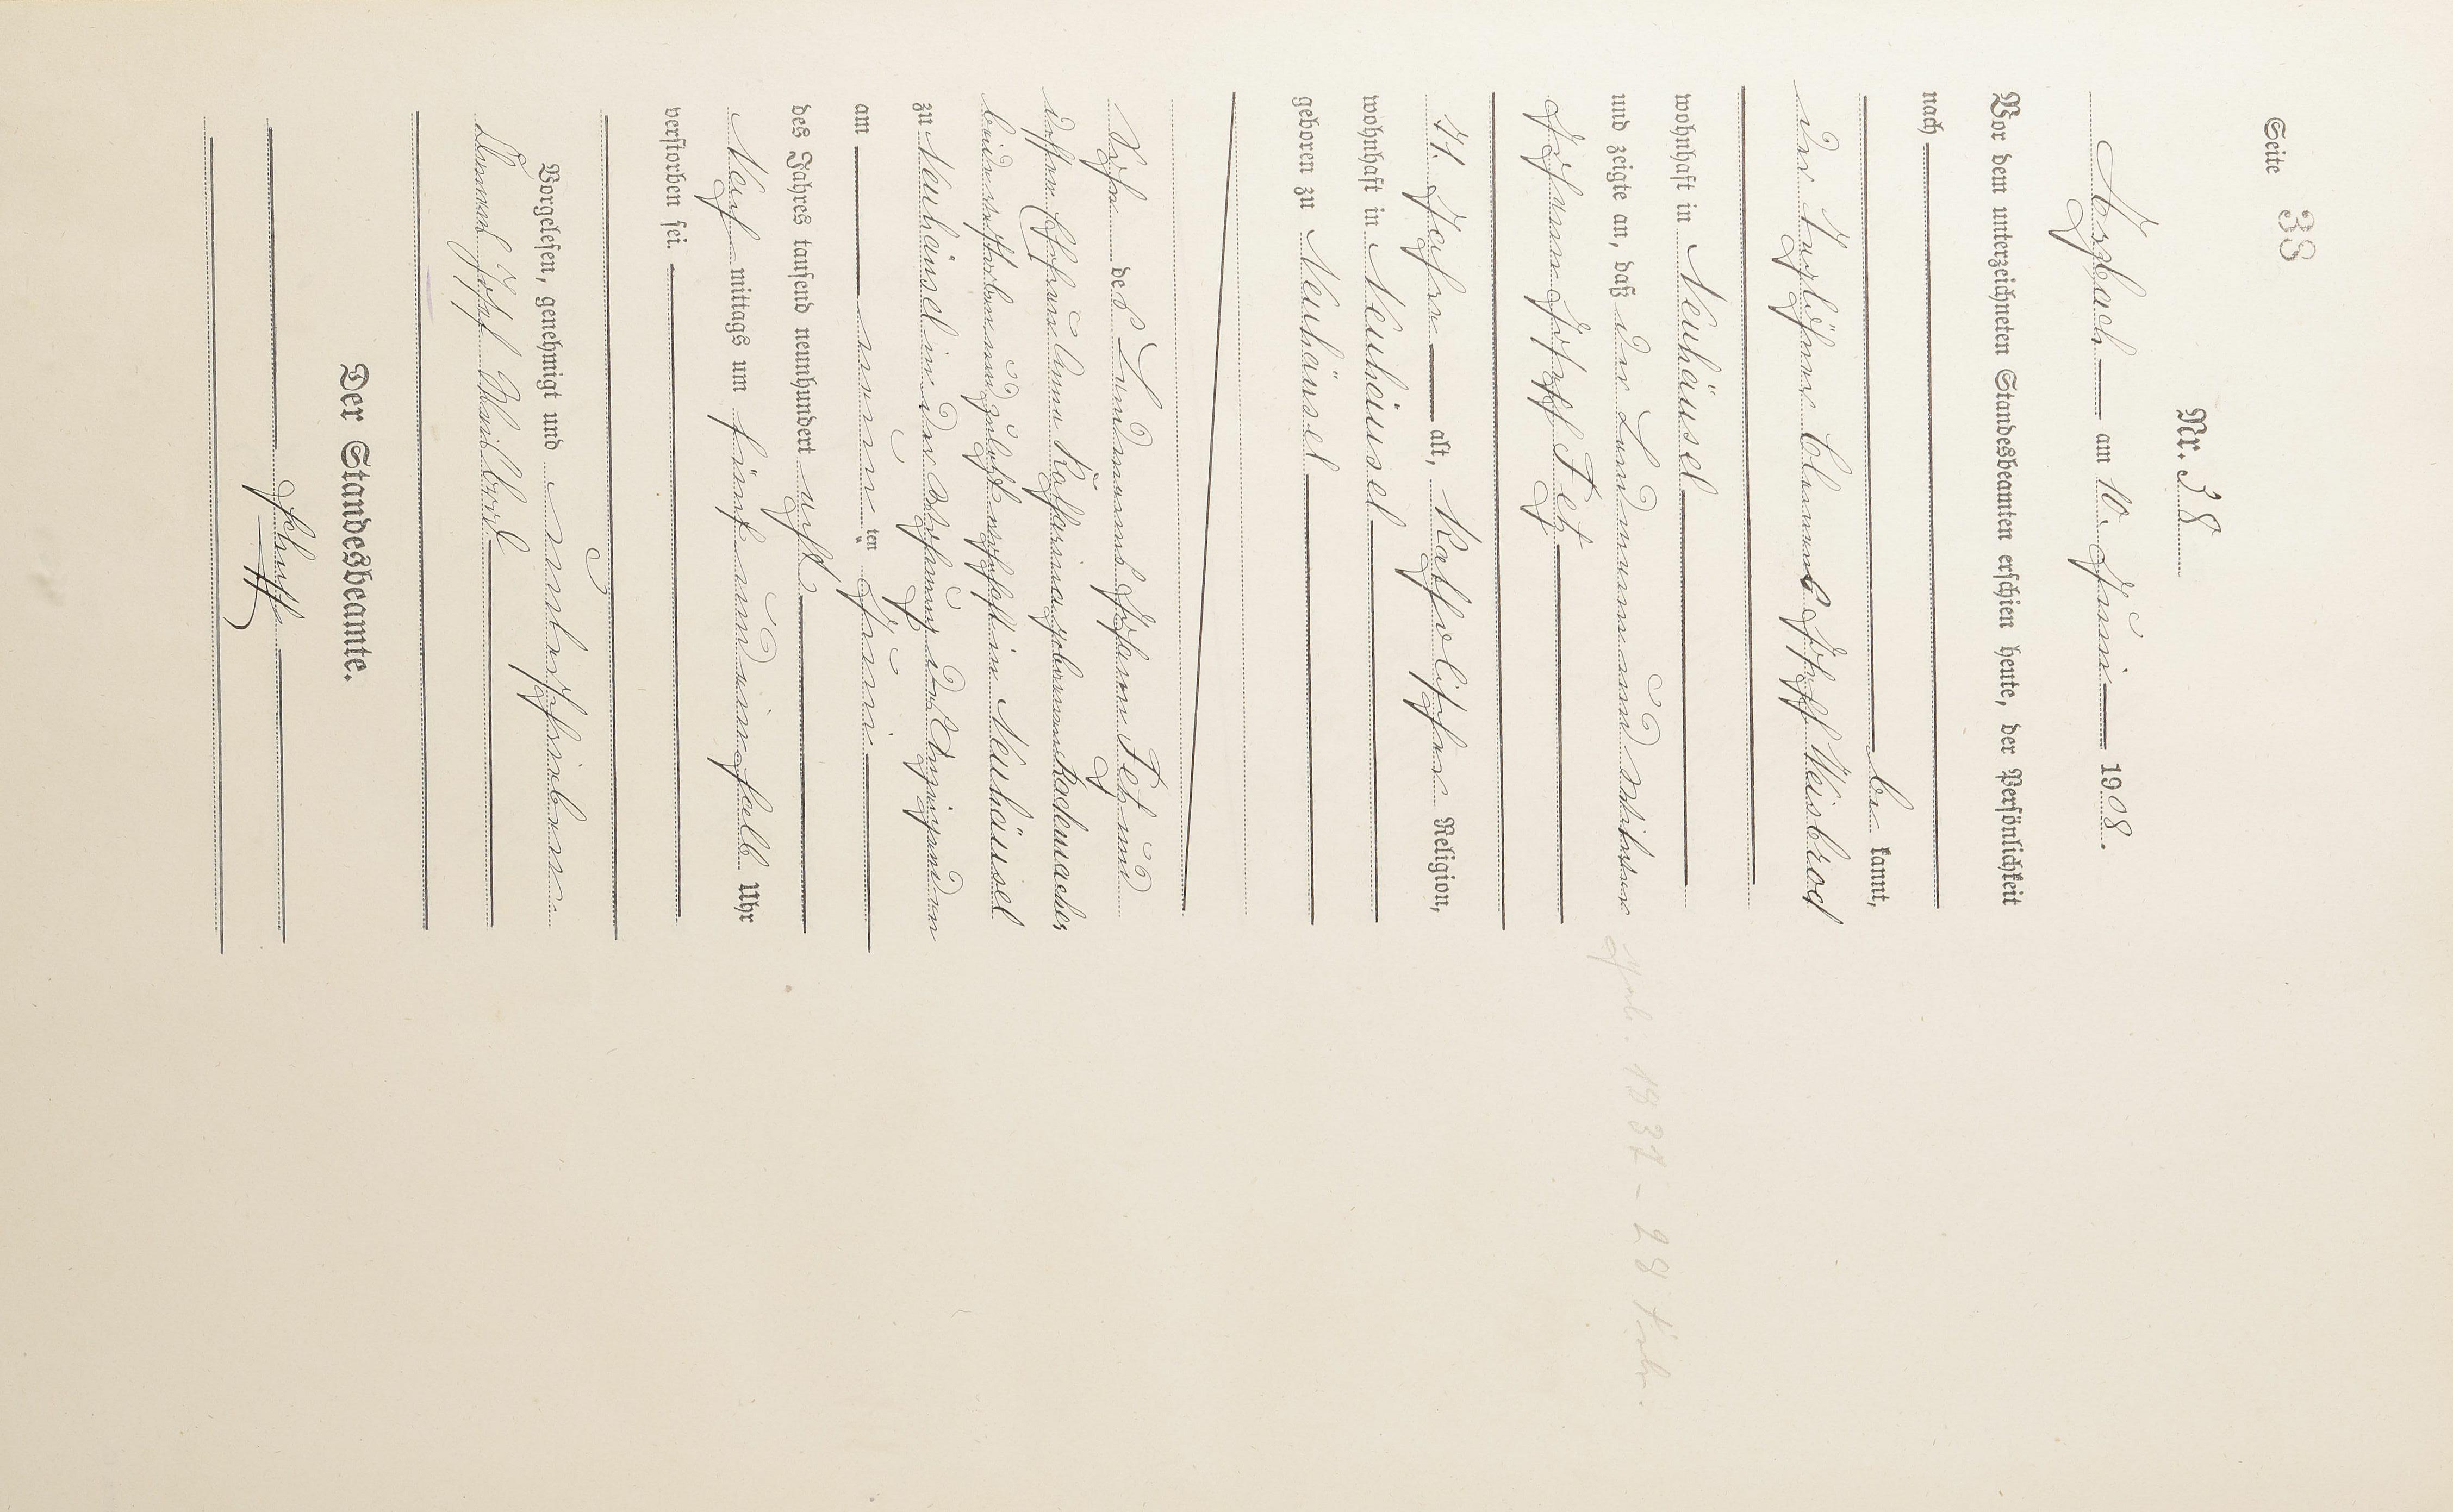 Seite 38
Nr. 38
Arzbach am 10. Juni 1908.
Vor dem unterzeichneten Standesbeamten erschien heute, der Persönlichkeit
nach
be kannt,
der Taglöhner Clemens Joseph Weisbrod
wohnhaft in Neuhäusel
und zeigte an, daß der Landmann und Wittwer
Johann Joseph Fetz
71 Jahre alt, katholischer Religion,
wohnhaft in Neuhäusel
geboren zu Neuhäusel
Sohn des Landmanns Johann Fetz und
dessen Ehefrau Anna Katharina geborenen Rademacher
beide verstorben und zuletzt wohnhaft in Neuhäusel
zu Neuhäusel in der Wohnung des Anzeigenden
am neun ten Juni
des Jahres tausend neunhundert acht
Nach mittags um fünf und ein halb Uhr
verstorben sei.
Vorgelesen, genehmigt und unterschrieben
Clemens Josef Weisbrod
Der Standesbeamte.
geb. 1837 - 28 Febr.